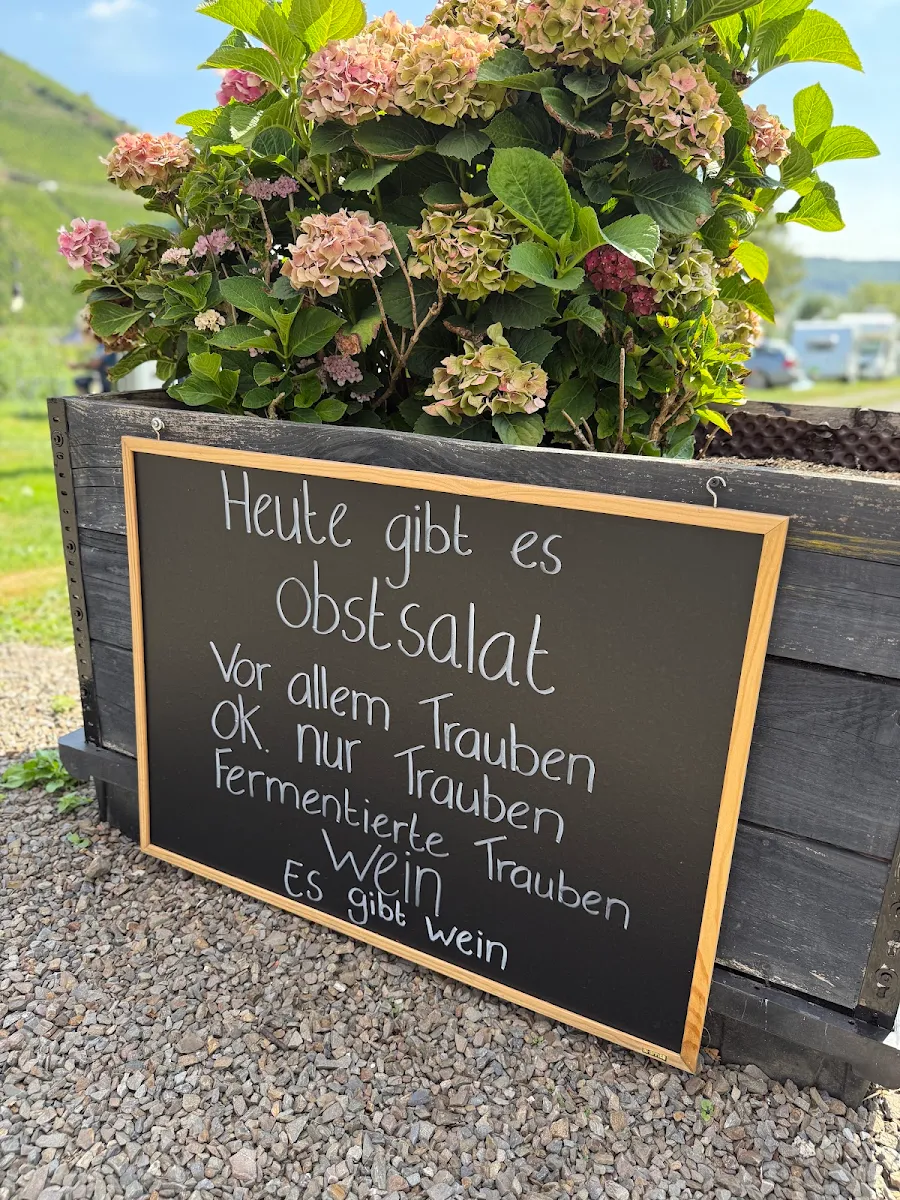 Heute gibt es
Obstsalat
Vor allem Trauben
OK. nur Trauben
Fermentierte Trauben
Wein
Es gibt Wein